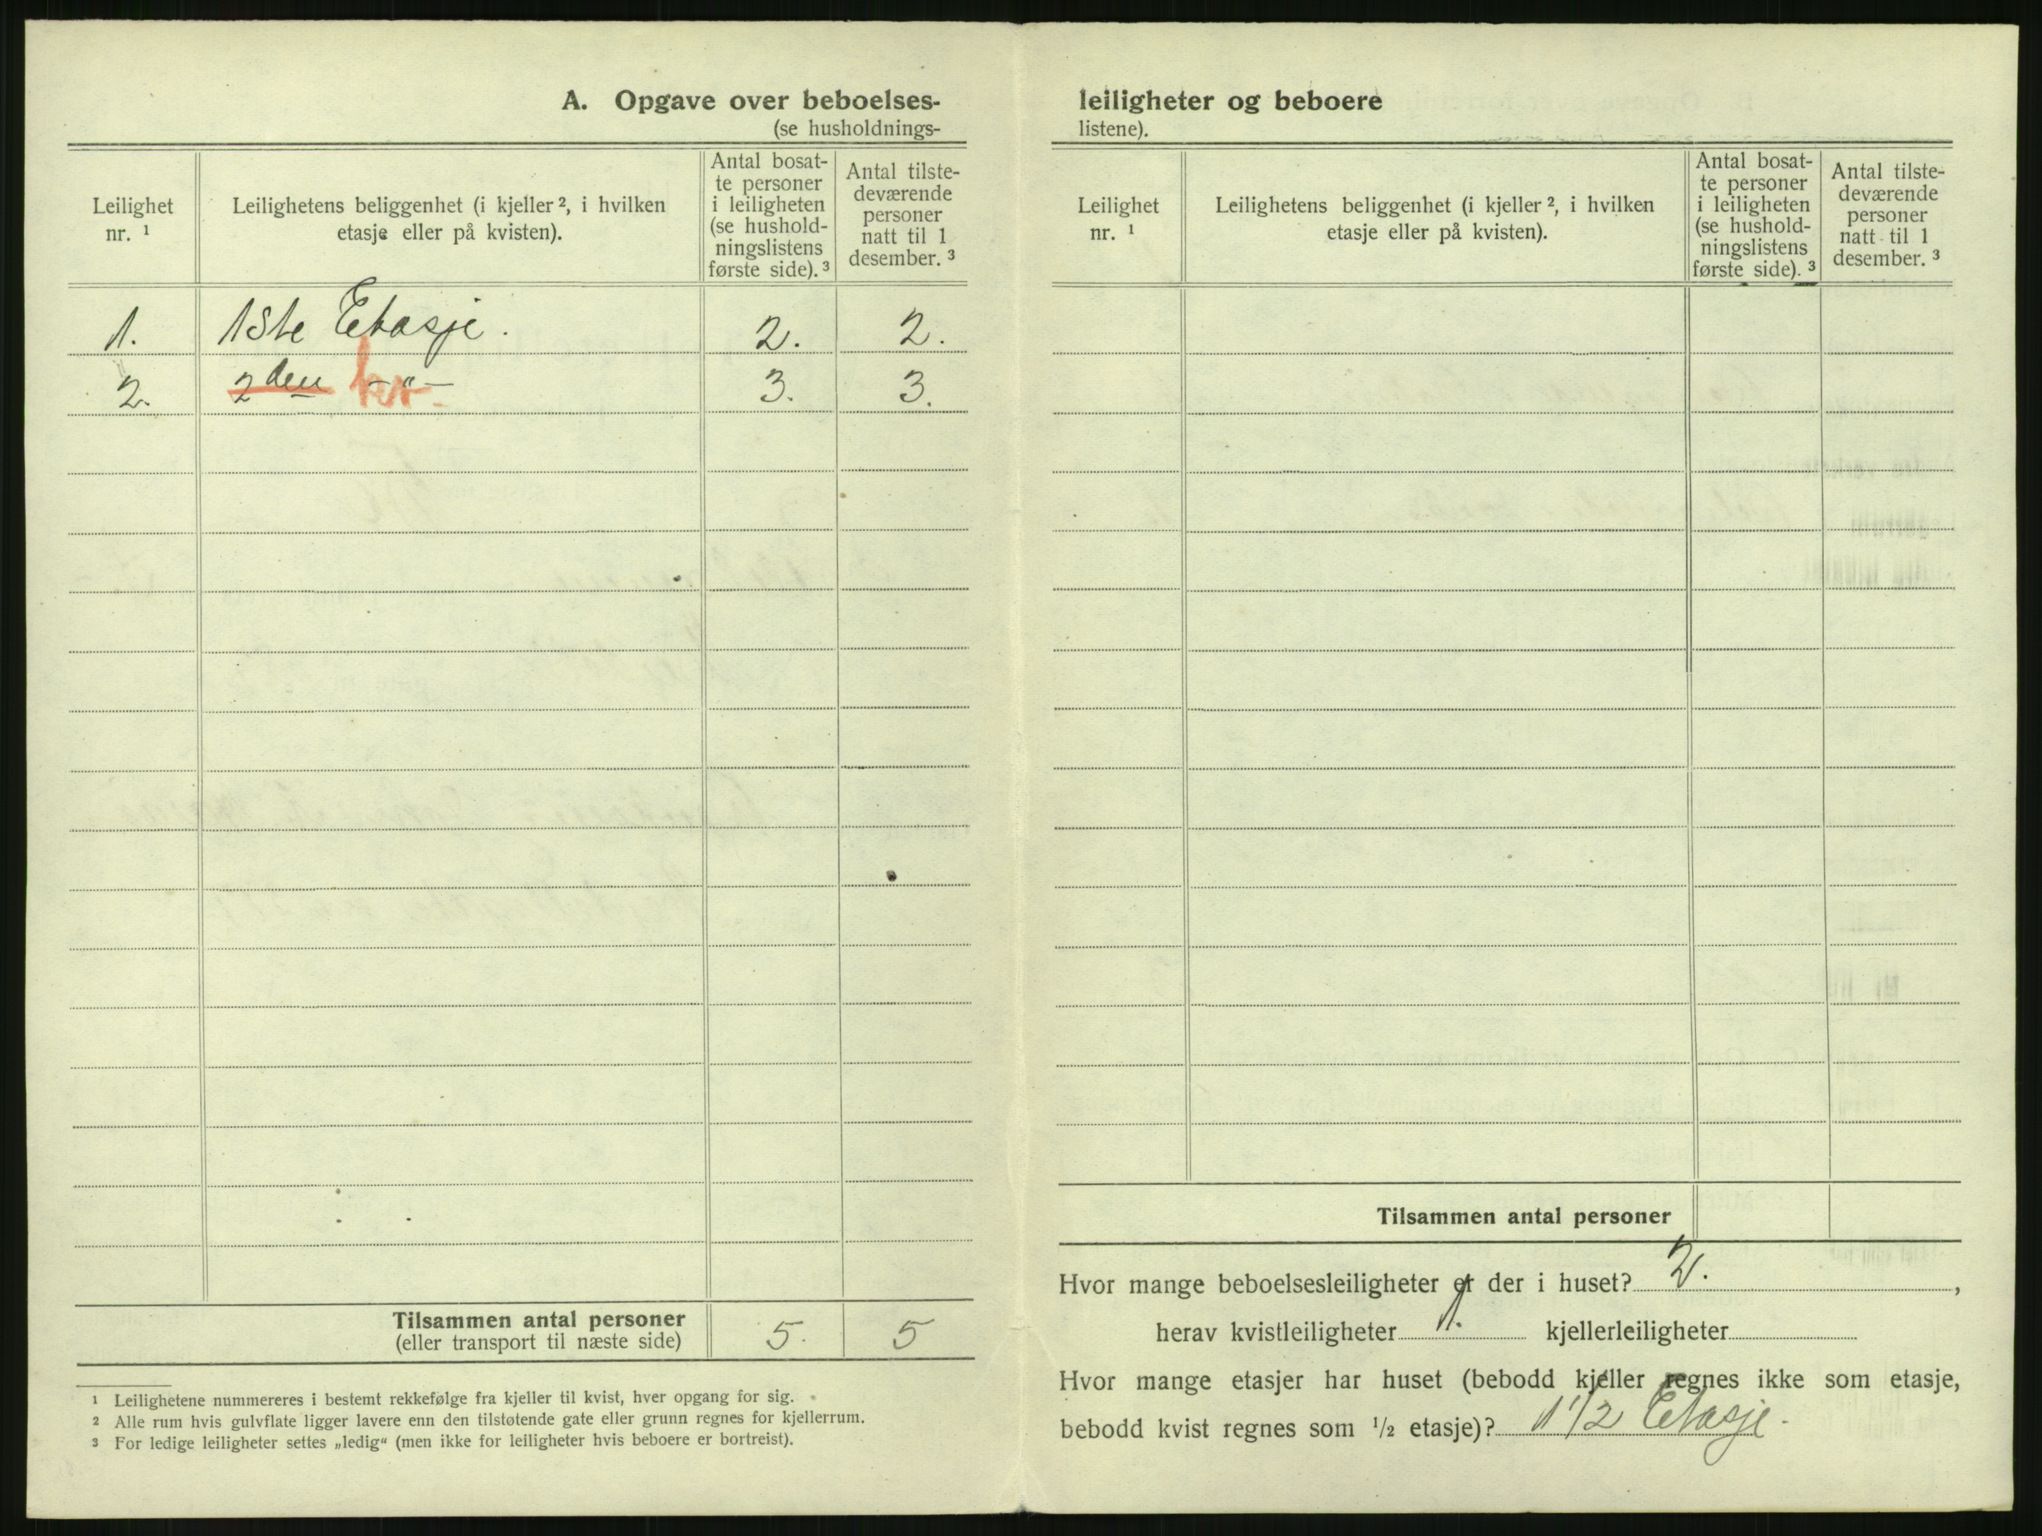 A. Opgave over beboelses-
(se husholdnings-
Leilighet nr. ¹
Leilighetens beliggenhet (i kjeller ², i hvilken etasje eller på kvisten).
Antal bosat-
te personer
i leiligheten
(se hushold-
ningslistens
første side). ³
Antal tilste-
deværende
personer
natt til 1
desember. ³
1. 1ste Etasje. 2. 2.
2. 2den kv. -"- 3. 3.
Tilsammen antal personer 5. 5
(eller transport til næste side)
¹ Leilighetene nummereres i bestemt rekkefølge fra kjeller til kvist, hver opgang for sig.
² Alle rum hvis gulvflate ligger lavere enn den tilstøtende gate eller grunn regnes for kjellerrum.
³ For ledige leiligheter settes „ledig“ (men ikke for leiligheter hvis beboere er bortreist).
leiligheter og beboere
listene).
Leilighet nr. ¹
Leilighetens beliggenhet (i kjeller ², i hvilken etasje eller på kvisten).
Antal bosat-
te personer
i leiligheten
(se hushold-
ningslistens
første side). ³
Antal tilste-
deværende
personer
natt til 1
desember. ³
Tilsammen antal personer
Hvor mange beboelsesleiligheter er der i huset? 2. ,
herav kvistleiligheter 1. kjellerleiligheter
Hvor mange etasjer har huset (bebodd kjeller regnes ikke som etasje,
bebodd kvist regnes som ½ etasje)? 1 1/2 Etasje.